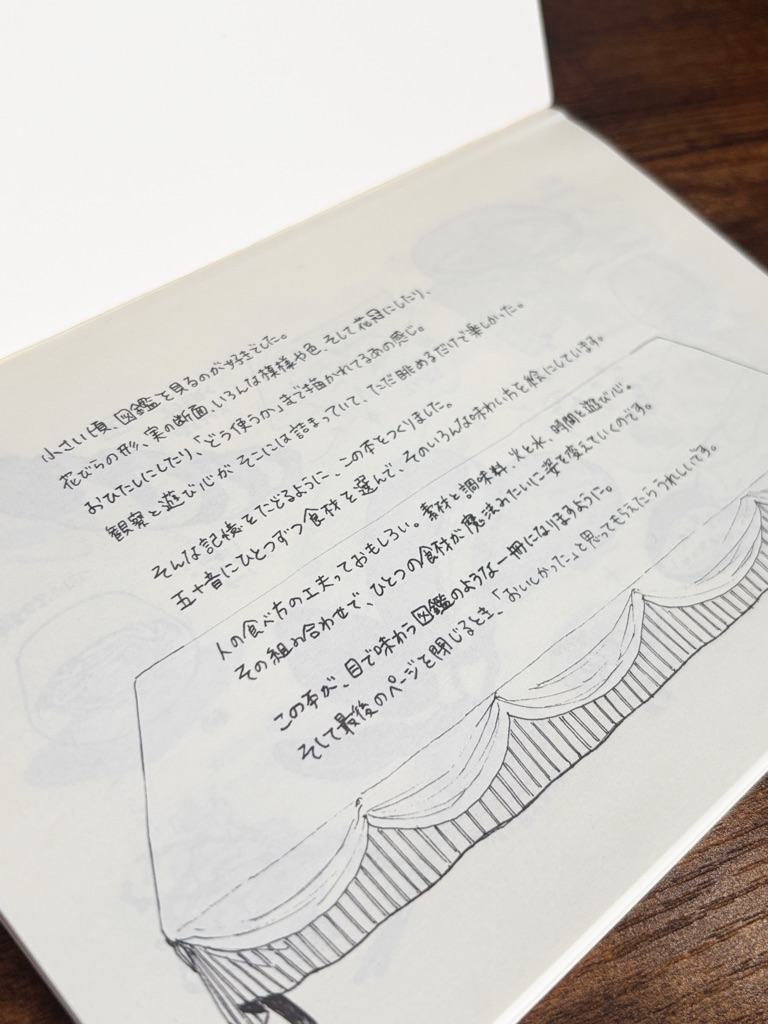 小さい頃、図鑑を見るのが好きでした。
花びらの形、実の断面、いろんな模様や色、そして花冠にしたり、
おひたしにしたり、「どう使うか」まで描かれてるあの感じ。
観察と遊び心がそこには詰まっていて、ただ眺めるだけで楽しかった。
そんな記憶をたどるように、この本をつくりました。
五十音にひとつずつ食材を選んで、そのいろんな味わい方を絵にしています。
人の食べ方の工夫っておもしろい。素材と調味料、火と水、時間と遊び心。
その組み合わせで、ひとつの食材が魔法みたいに姿を変えていくのです。
この本が、目で味わう図鑑のような一冊になりますように。
そして最後のページを閉じるとき、「おいしかった」と思ってもらえたらうれしいです。